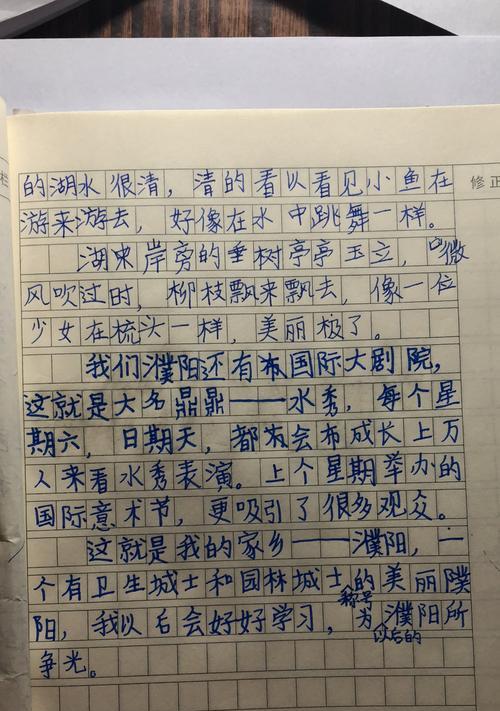 的湖水很清，清的看以看见小鱼在
游来游去，好像在水中跳舞一样。
湖東岸旁的垂树亭亭玉立，微
风吹过时，柳枝飘来飘去，像一位
少女在梳头一样，美丽极了。
我们濮阳还有布国际大剧院，
这就是大名鼎鼎——水秀，每个星
期六，日期天，都为会布成长上万
人来看水秀表演。上个星期举办的
国际意术节，更吸引了很多观众。
这就是我的家乡——濮阳，一
个有卫生城士和园林城士的美丽濮
称号
阳，我以后会好好学习，为濮阳所
以后的
争光。
修正
栏